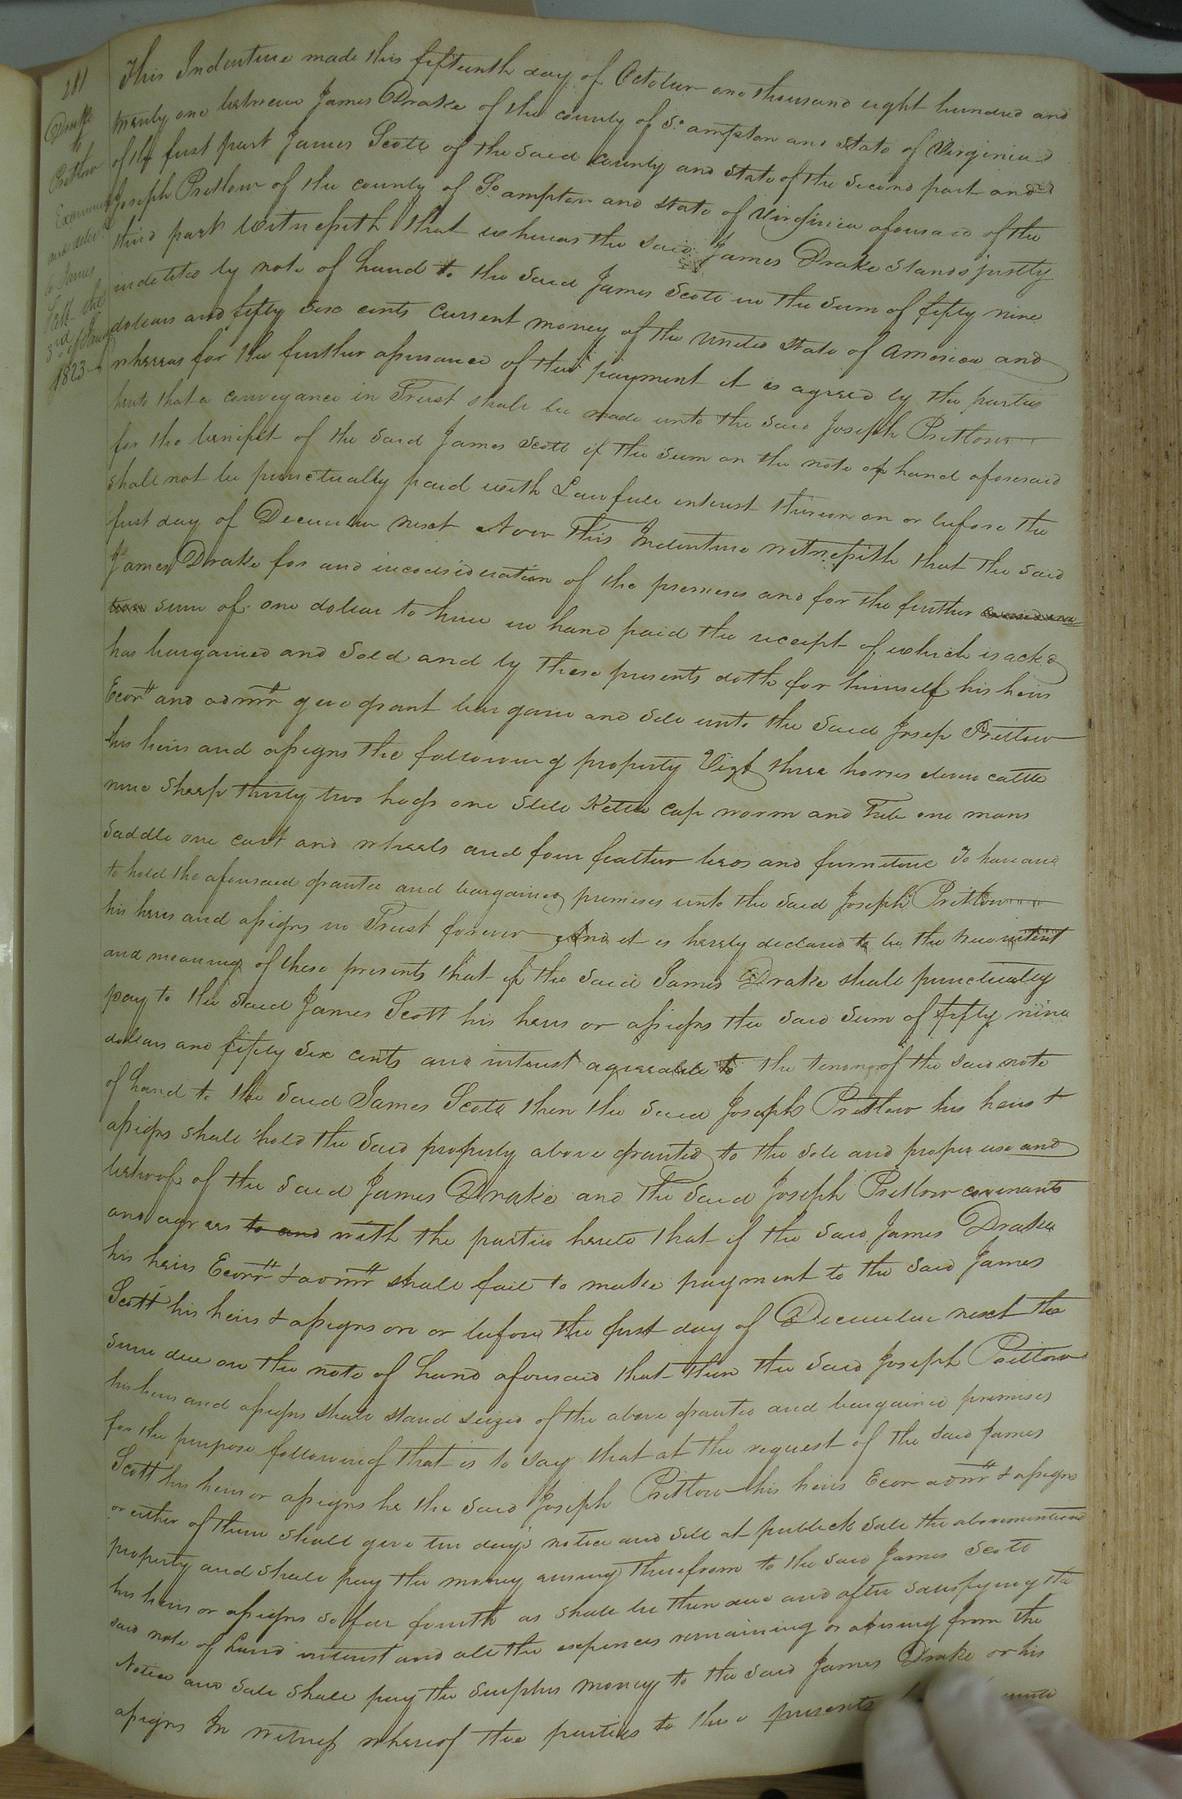 281
Drake
to
Pretlow
Examined
and deld
to James
the
3rd of
1823
This Indenture made this fifteenth day of October one thousand eight hundred and
twenty one between James Drake of the county of So.ampton and State of Virginia
of the first part James Scott of the said county and State of the second part and
Joseph Pretlow of the county of So.ampton and state of Virginia aforesaid of the
third part Witnesseth that whereas the said James Drake stands justly
indetted by note of hand to the said James Scott in the sum of fifty nine
dollars and fifty six cents current money of the United State of America and
whereas for the further assurance of the payment it is agreed by the parties
hereto that a conveyance in Trust shall be made unto the said Joseph Pretlow
for the benifit of the said James Scott if the sum on the note of hand aforesaid
shall not be punctually paid with Lawfull interest thereon on or before the
first day of December next Now This Indenture witnesseth that the said
James Drake for and inconsideration of the premises and for the further
sum of one dollar to him in hand paid the receipt of which is ackd
has bargained and sold and by these presents doth for himself his heirs
Ecors and admrs give grant bargain and sell unto the said Josep Pretlow
his heirs and assigns the following property Vizt three horses eleven cattle
nine sheep thirty two hogs one still Kettle cap worm and Tub one mans
saddle one cart and wheels and four feather beds and furniture To have and
to hold the aforesaid granted and bargained premises unto the said Joseph Pretlow
his heirs and assigns in Trust forever And it is hereby declared to be the true intent
and meaning of these presents that if the said James Drake shall punctually
pay to the said James Scott his heirs or assigns the said sum of fifty nine
dollars and fifty six cents and interest agreeable to the tenor of the said note
of hand to the said James Scott then the said Joseph Pretlow his heirs &
assigns shall hold the said property above granted to the sole and proper use and
behoof of the said James Drake and the said Joseph Pretlow covenants
and agrees to and with the parties hereto that if the said James Drake
his heirs Ecors & admrs shall fail to make payment to the said James
Scott his heirs & assigns on or before the first day of December next the
sum due on the note of hand aforesaid that then the said Joseph Pretlow
his heirs and assigns shall stand seized of the above granted and bargained premises
for the purpose following that is to say that at the request of the said James
Scott his heirs or assigns he the said Joseph Pretlow his heirs Ecor admrs & assigns
or either of them shall give ten days notice and sell at publick sale the abovementioned
property and shall pay the money arising therefrom to the said James Scott
his heirs or assigns so far fourth as shall be then due and after satisfying the
said note of hand interest and all the expences remaining or arising from the
Notice and sale shall pay the surplus money to the said James Drake or his
assigns In witness whereof the parties to these presents